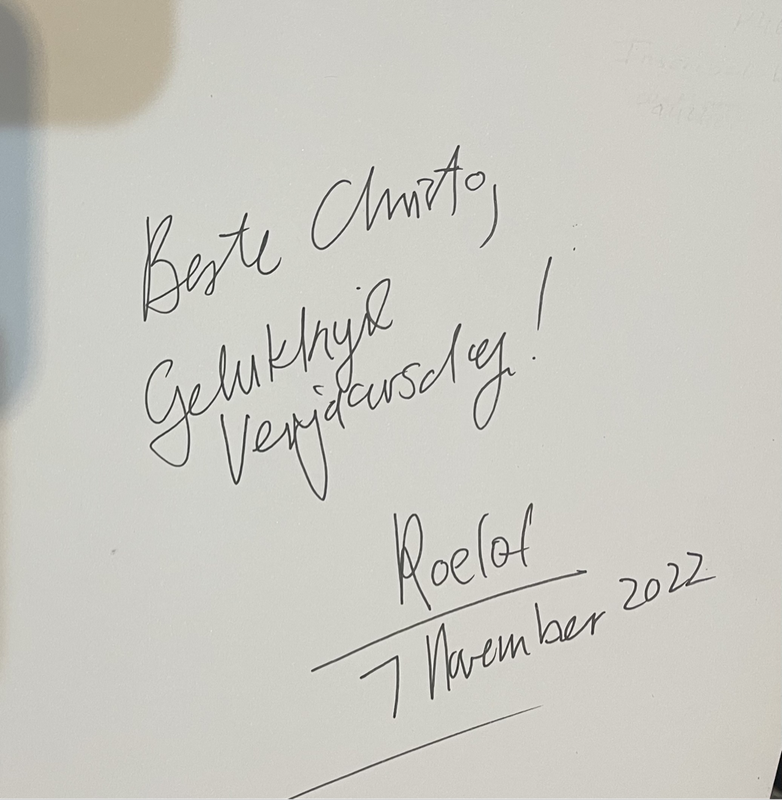 Beste Christo,
Gelukkige
Verjaarsdag!
Roelof
7 November 2022